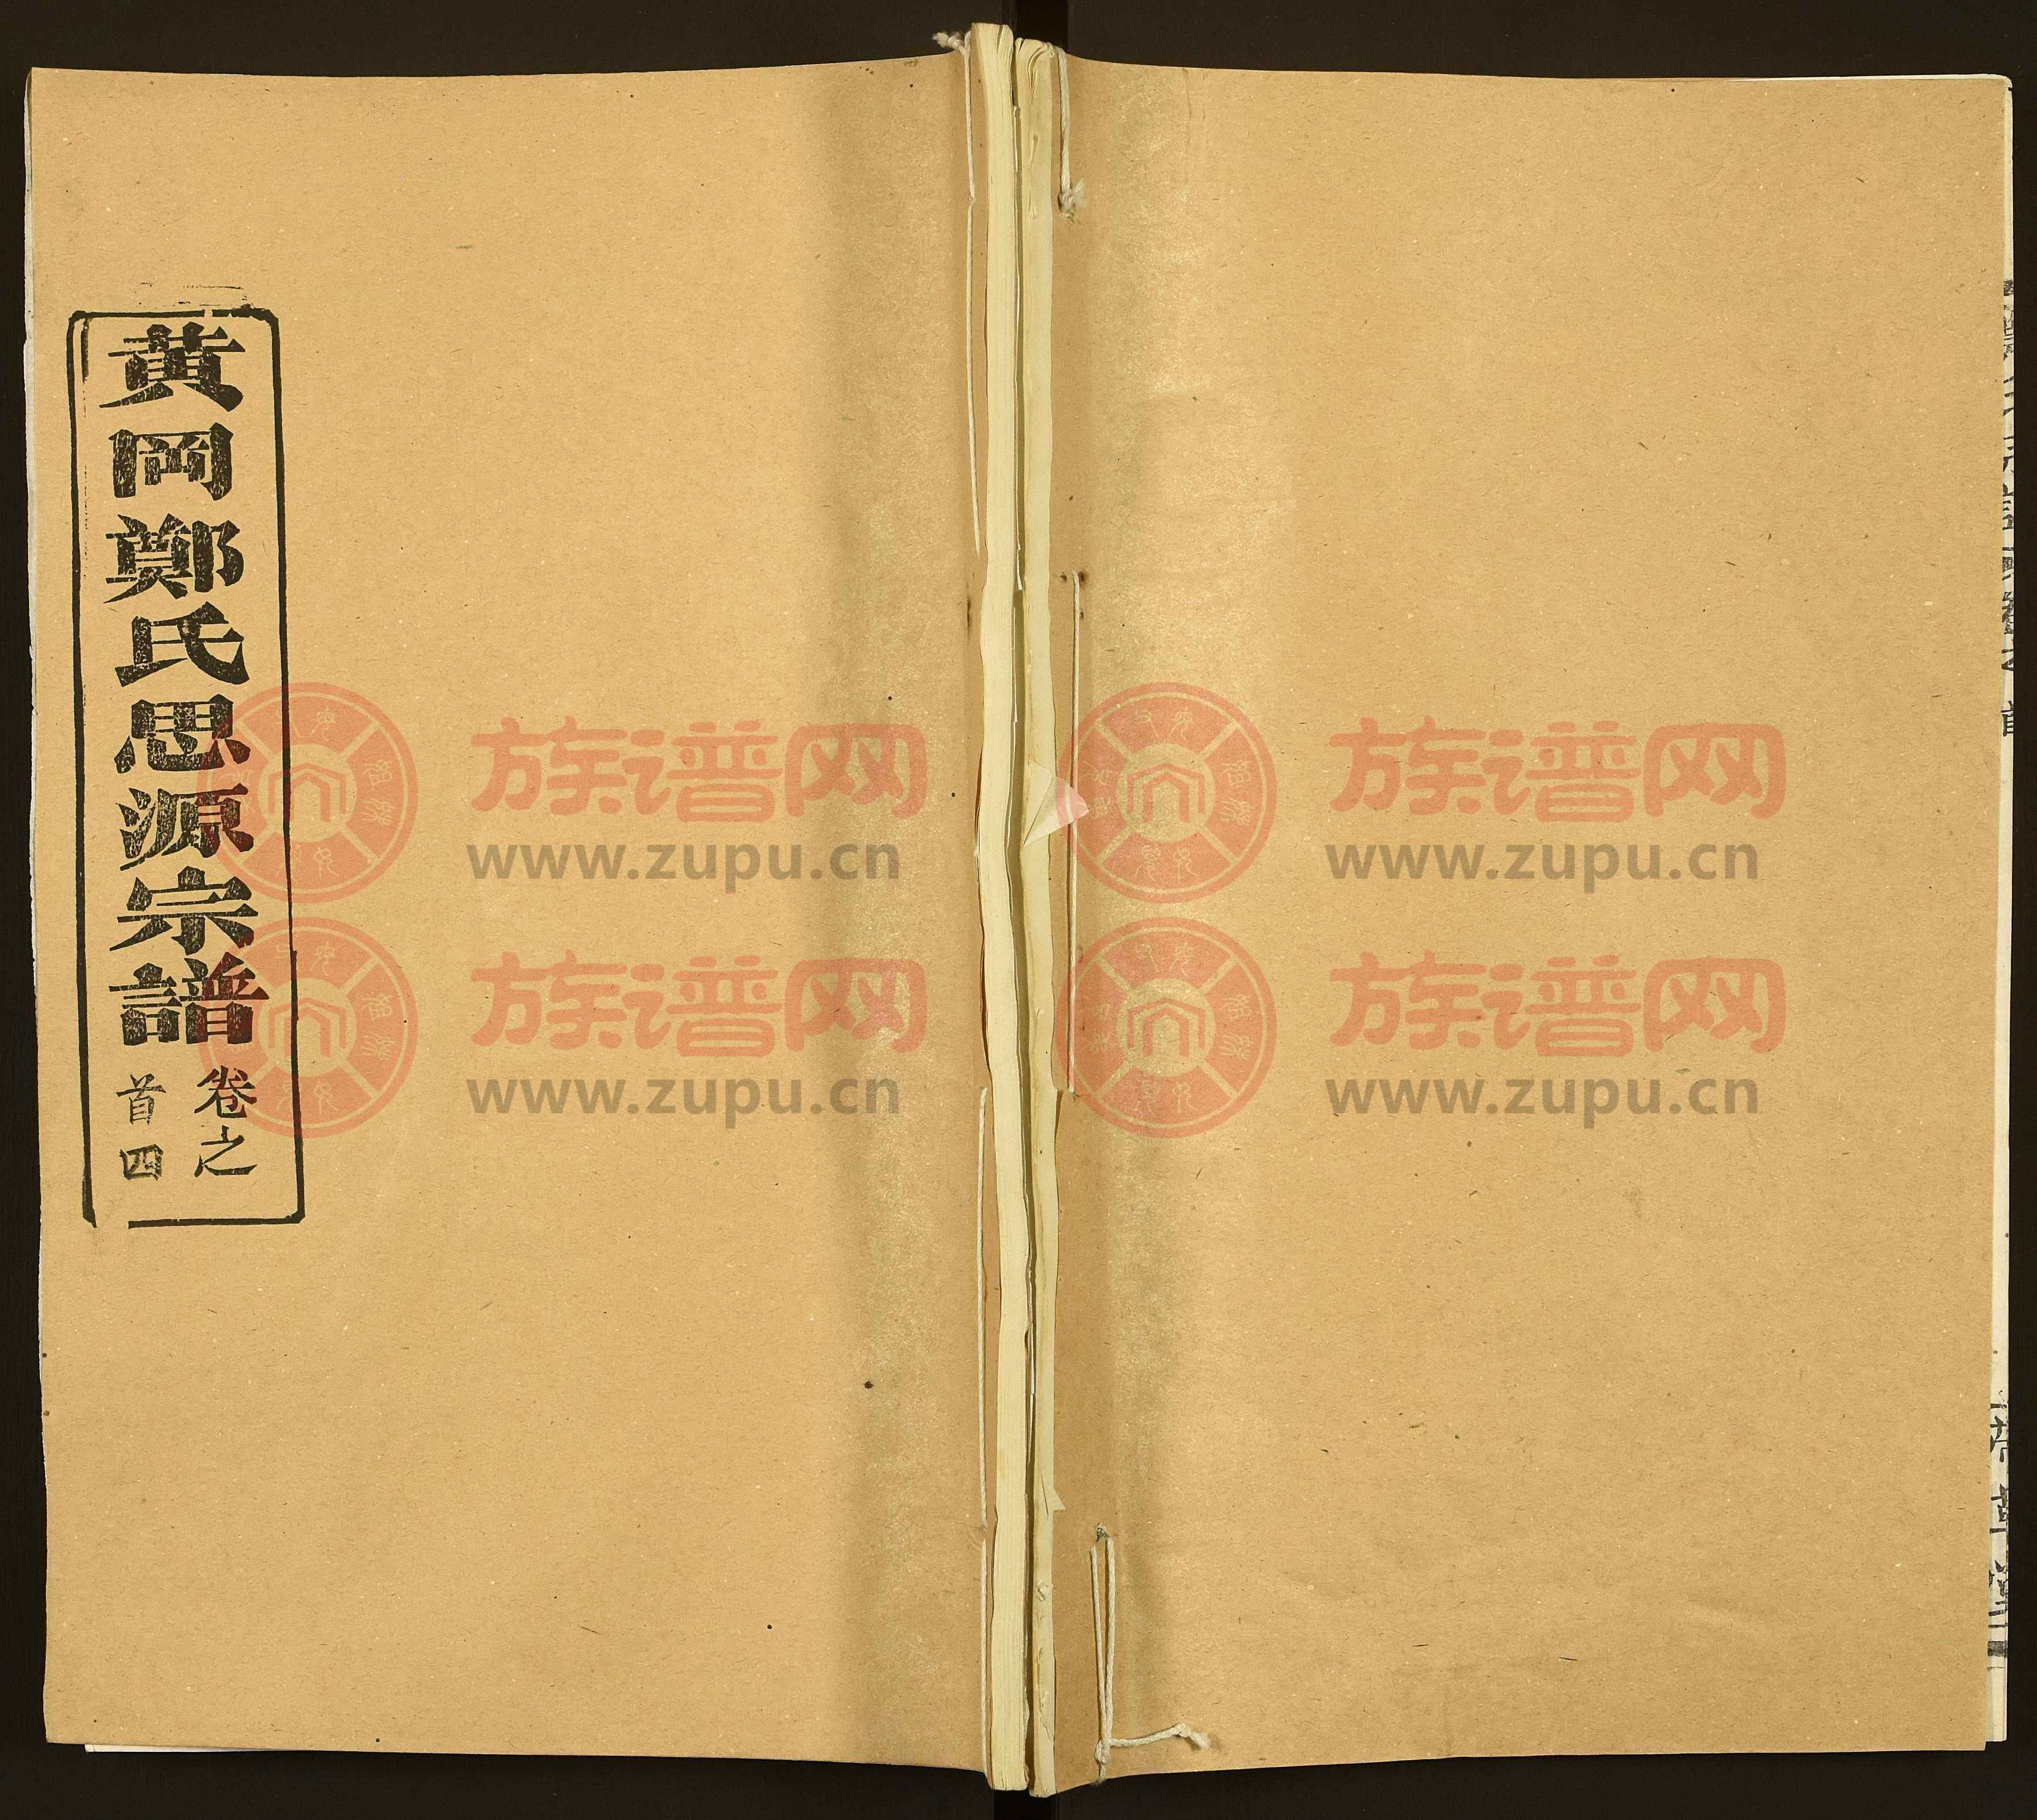 黄岡鄭氏思源宗譜
卷之
首四
族谱网
www.zupu.cn
族谱网
www.zupu.cn
族谱网
www.zupu.cn
族谱网
www.zupu.cn